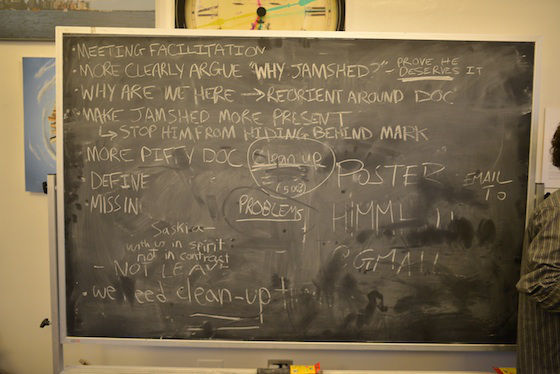 • MEETING FACILITATION
• MORE CLEARLY ARGUE "WHY JAMSHED?" - PROVE HE DESERVES IT
• WHY ARE WE HERE → REORIENT AROUND DOC
• MAKE JAMSHED MORE PRESENT
↳ STOP HIM FROM HIDING BEHIND MARK
MORE PIFFY DOC
Clean up
• DEFINE
• MISSIN
PROBLEMS
POSTER
EMAIL TO
Saskia
with us in spirit
not in contract
- NOT LEAVE
• we need clean-up